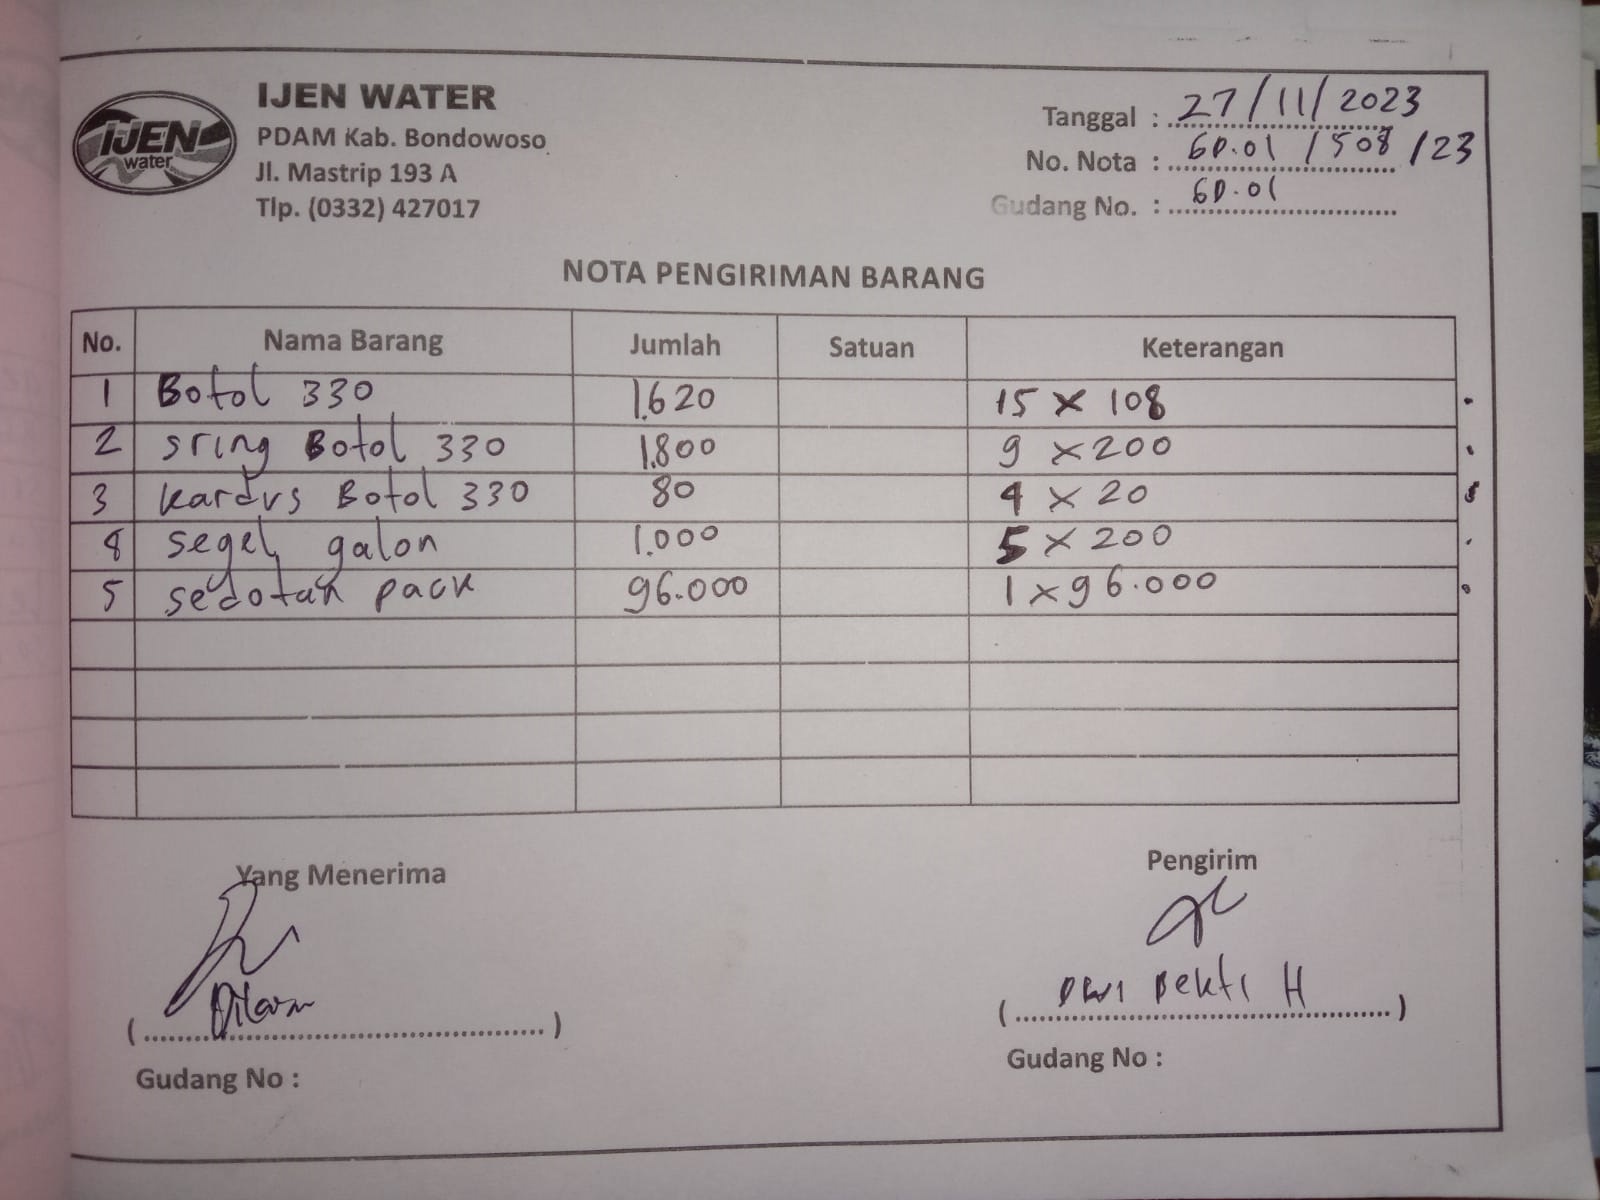 IJEN WATER
IJEN
water
PDAM Kab. Bondowoso
Jl. Mastrip 193 A
Tlp. (0332) 427017
Tanggal : 27/11/2023
No. Nota : GD.01 /508 /23
Gudang No. : GD.01
NOTA PENGIRIMAN BARANG
No. Nama Barang Jumlah Satuan Keterangan
1 Botol 330 1.620 15 x 108
2 sring Botol 330 1.800 9 x 200
3 kardus Botol 330 80 4 x 20
4 segel galon 1.000 5 x 200
5 sedotan pack 96.000 1 x 96.000
Yang Menerima Pengirim
( ) ( Dwi Bekti H )
Gudang No : Gudang No :